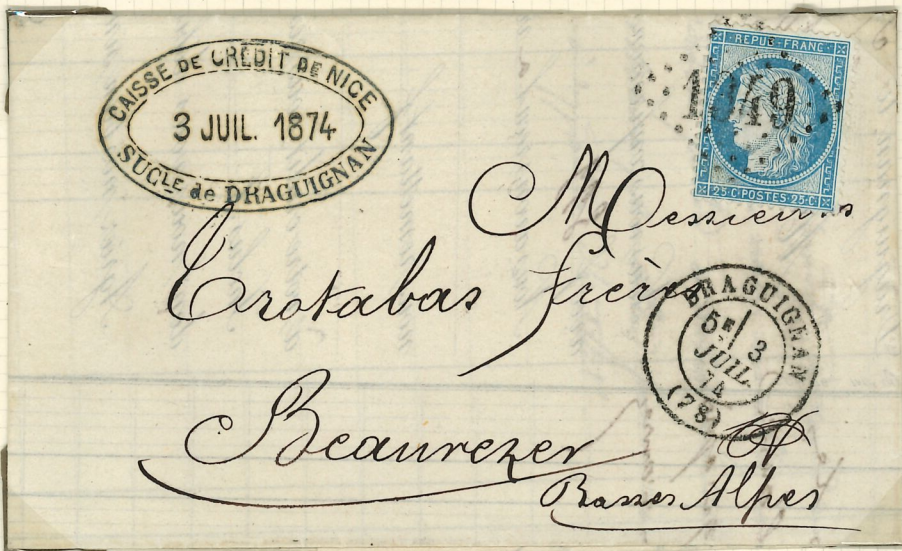 CAISSE DE CRÉDIT DE NICE
3 JUIL. 1874
SUCLE de DRAGUIGNAN
REPUB·FRANC·
1349
25·C·POSTES·25·C·
Messieurs
Trotabas frères
DRAGUIGNAN
5E
3
JUIL
74
(78)
Beaurezer
Basses Alpes